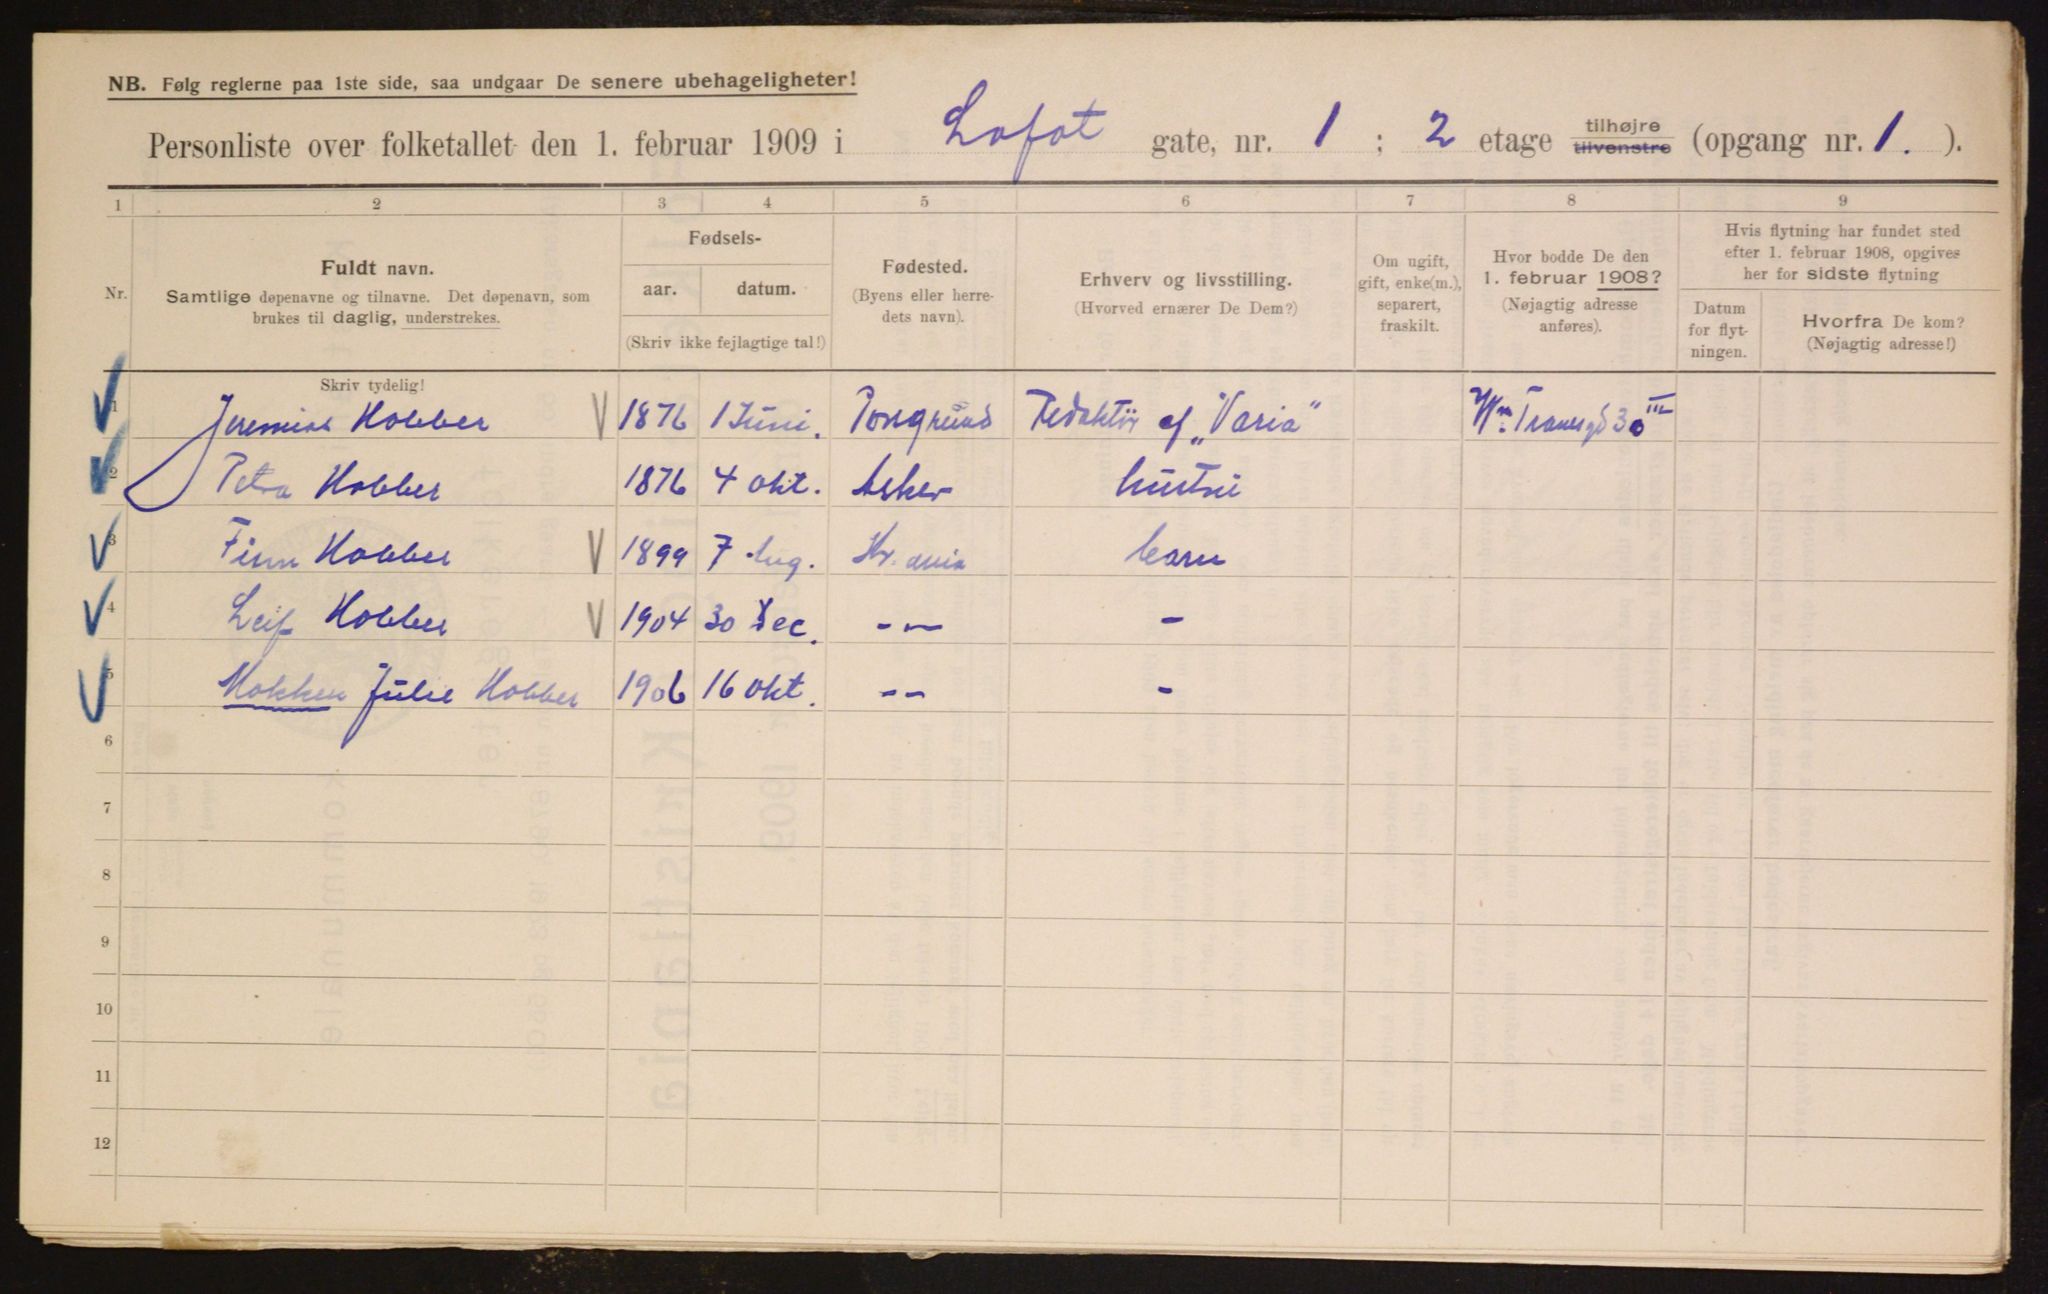 NB. Følg reglerne paa 1ste side, saa undgaar De senere ubehageligheter!
Personliste over folketallet den 1. februar 1909 i Lofot gate, nr. 1 ; 2 etage tilhøjre tilvenstre (opgang nr. 1. ).
1 2 3 4 5 6 7 8 9
Nr.
Fuldt navn.
Samtlige døpenavne og tilnavne. Det døpenavn, som
brukes til daglig, understrekes.
Fødsels-
aar. datum.
(Skriv ikke fejlagtige tal!)
Fødested.
(Byens eller herre-
dets navn).
Erhverv og livsstilling.
(Hvorved ernærer De Dem?)
Om ugift,
gift, enke(m.),
separert,
fraskilt.
Hvor bodde De den
1. februar 1908?
(Nøjagtig adresse
anføres).
Hvis flytning har fundet sted
efter 1. februar 1908, opgives
her for sidste flytning
Datum
for flyt-
ningen.
Hvorfra De kom?
(Nøjagtig adresse!)
Skriv tydelig!
1 Jeremias Hobber 1876 1 Juni. Porsgrund Redaktør af „Varia" Wm. Tranesgd 30 III
2 Petra Hobber 1876 4 okt. Asker hustru
3 Finn Hobber 1899 7 Aug. Kr.ania barn
4 Leif Hobber 1904 30 Dec. -„- -
5 Hobber Julie 1906 16 okt. -- -
6
7
8
9
10
11
12